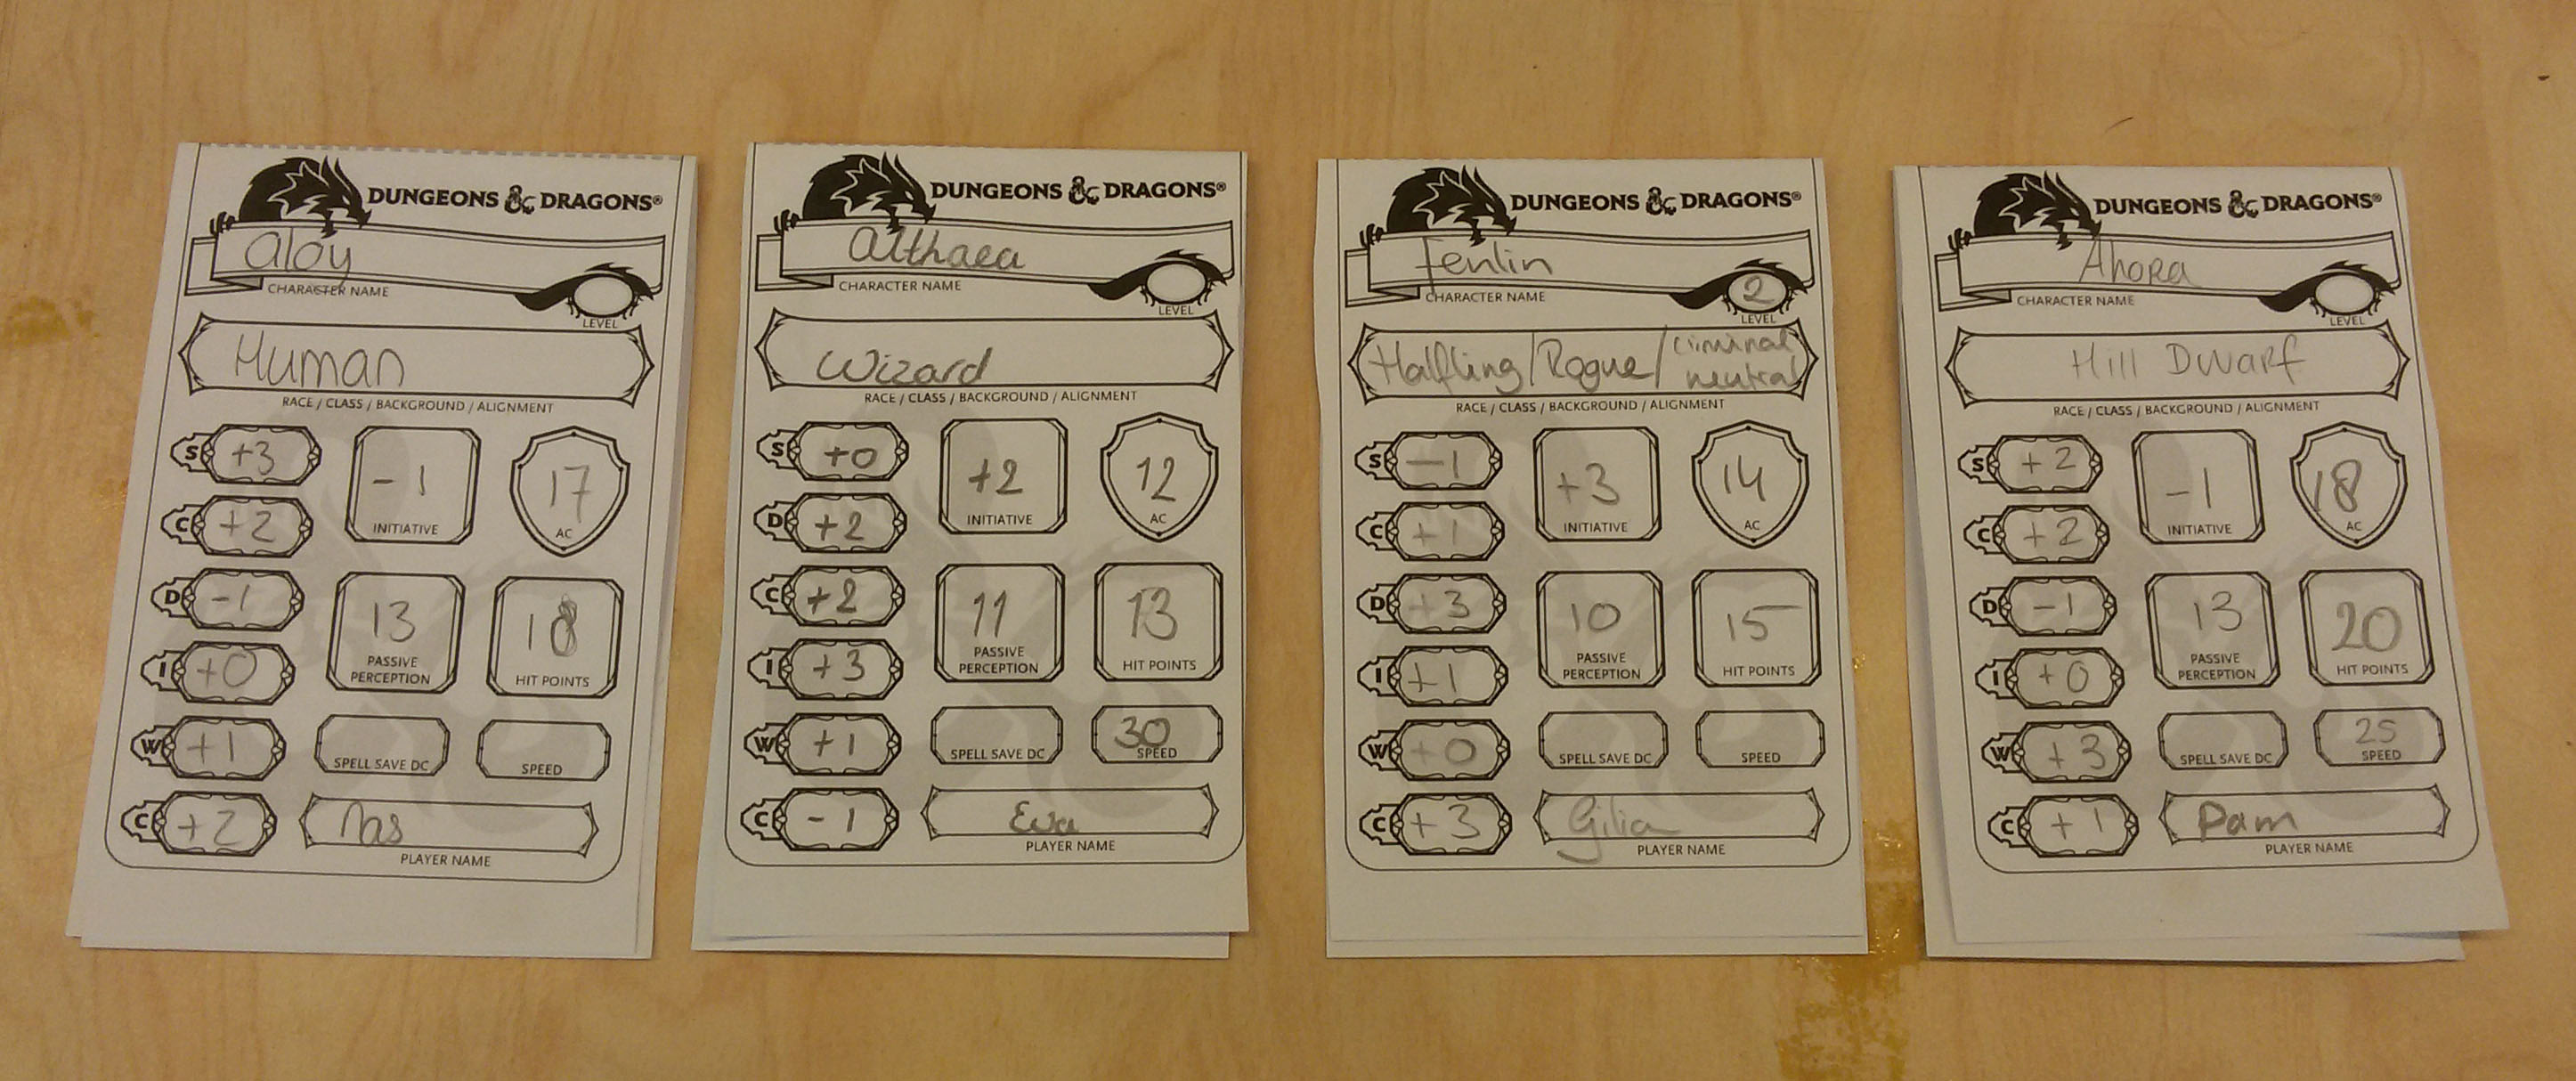 DUNGEONS & DRAGONS®
Aloy
CHARACTER NAME
LEVEL
Human
RACE / CLASS / BACKGROUND / ALIGNMENT
S +3
-1
INITIATIVE
17
AC
C +2
D -1
13
PASSIVE
PERCEPTION
18
HIT POINTS
I +0
W +1
SPELL SAVE DC
SPEED
C +2
Nas
PLAYER NAME
DUNGEONS & DRAGONS®
Althaea
CHARACTER NAME
LEVEL
Wizard
RACE / CLASS / BACKGROUND / ALIGNMENT
S +0
+2
INITIATIVE
12
AC
D +2
C +2
11
PASSIVE
PERCEPTION
13
HIT POINTS
I +3
W +1
SPELL SAVE DC
30
SPEED
C -1
Eva
PLAYER NAME
DUNGEONS & DRAGONS®
Fenlin
CHARACTER NAME
2
LEVEL
Halfling/Rogue/criminal
neutral
RACE / CLASS / BACKGROUND / ALIGNMENT
S -1
+3
INITIATIVE
14
AC
C +1
D +3
10
PASSIVE
PERCEPTION
15
HIT POINTS
I +1
W +0
SPELL SAVE DC
SPEED
C +3
Gilia
PLAYER NAME
DUNGEONS & DRAGONS®
Ahora
CHARACTER NAME
LEVEL
Hill Dwarf
RACE / CLASS / BACKGROUND / ALIGNMENT
S +2
-1
INITIATIVE
18
AC
C +2
D -1
13
PASSIVE
PERCEPTION
20
HIT POINTS
I +0
W +3
SPELL SAVE DC
25
SPEED
C +1
Pam
PLAYER NAME